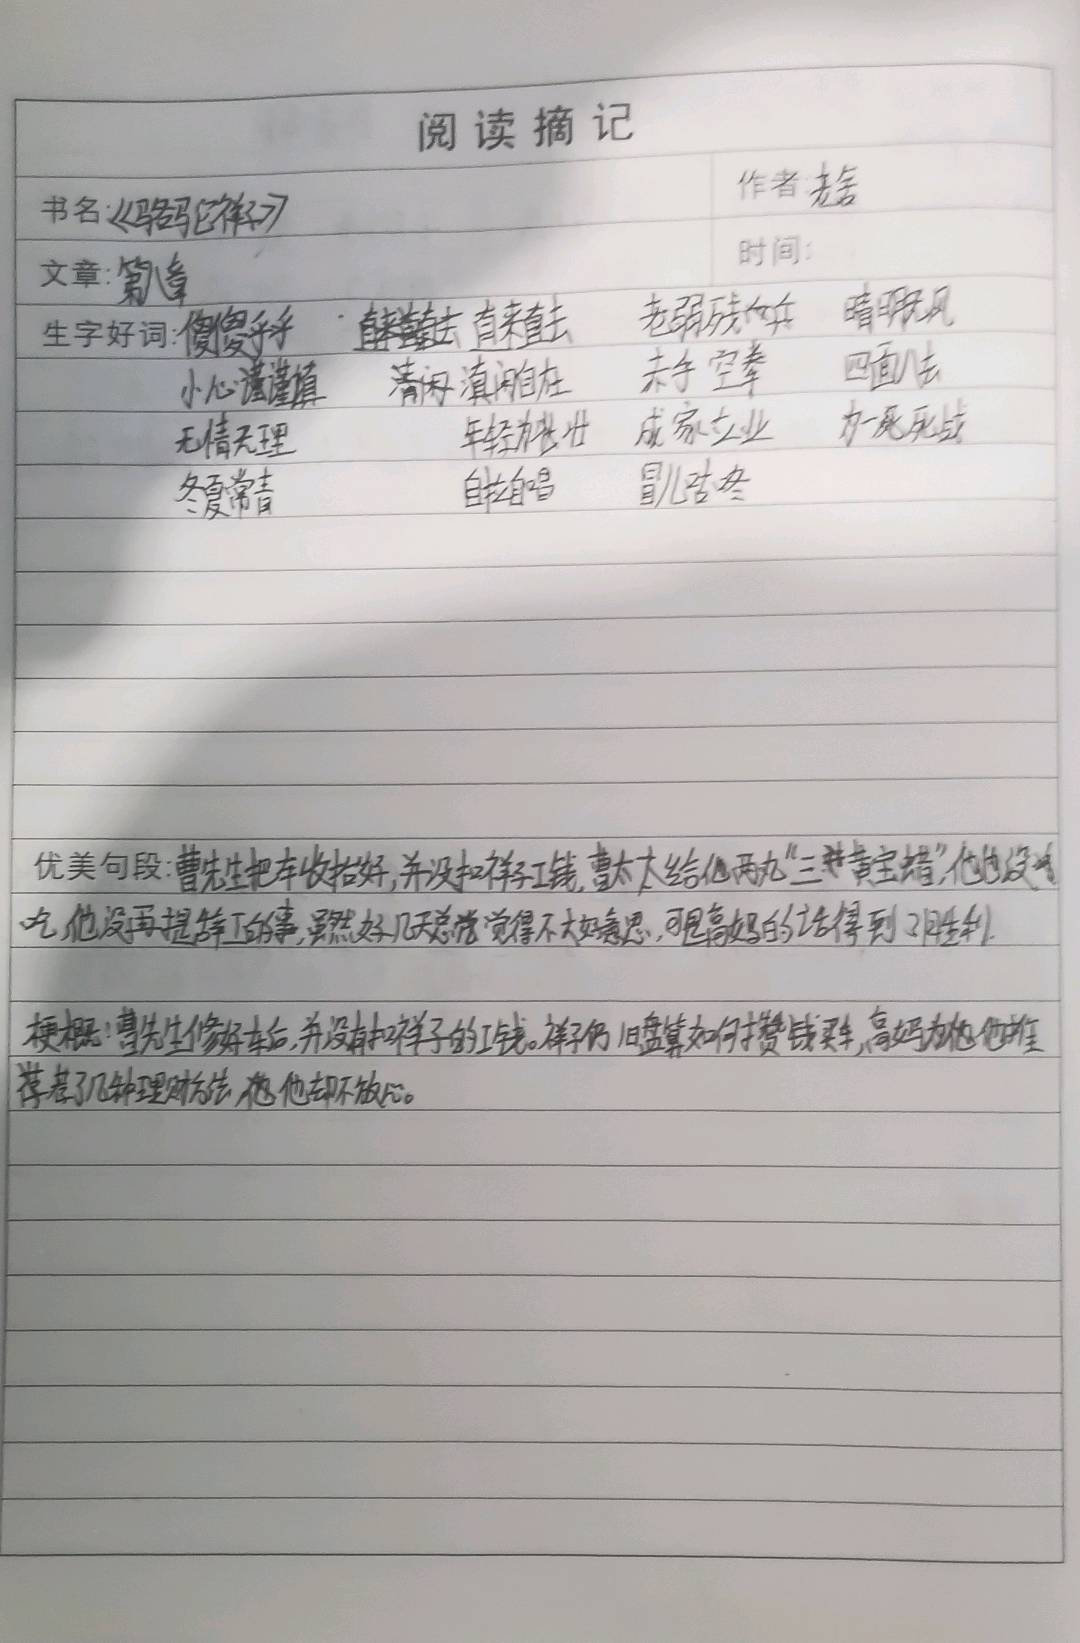 阅读摘记
书名:《骆驼祥子》 作者:老舍
文章:第八章 时间:
生字好词:傻傻乎乎 直来直去 老弱残兵 晴明无风
小心谨慎 清闲自在 赤手空拳 四面八方
无情无理 年轻力壮 成家立业 决一死战
冬夏常青 自拉自唱 冒儿咕咚
优美句段:曹先生把车收拾好,并没扣祥子工钱,曹太太给他两丸“三黄宝蜡”,他也没
吃,他没再提辞工的事,虽然好几天总觉得不大好意思,可是高妈的话得到了胜利。
梗概:曹先生修好车后,并没有扣祥子的工钱。祥子仍旧盘算如何攒钱买车,高妈为他推
荐着了几种理财方法,他却不放心。